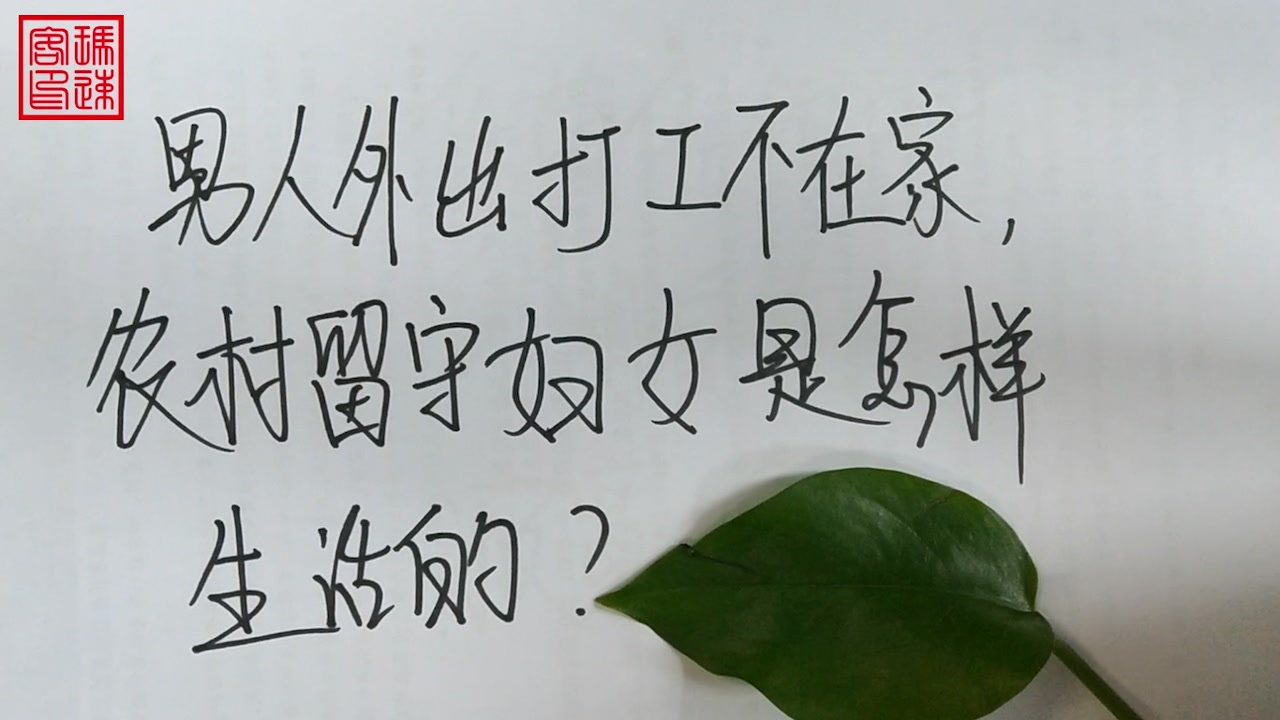 男人外出打工不在家,
农村留守妇女是怎样
生活的?